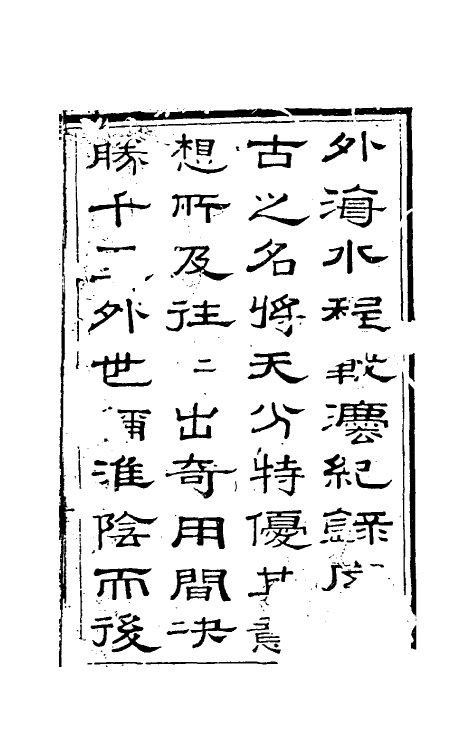 外海水程戰灋紀錄序
古之名將天分特優其意
想所及往二出奇用間决
勝千里外世稱淮陰而後